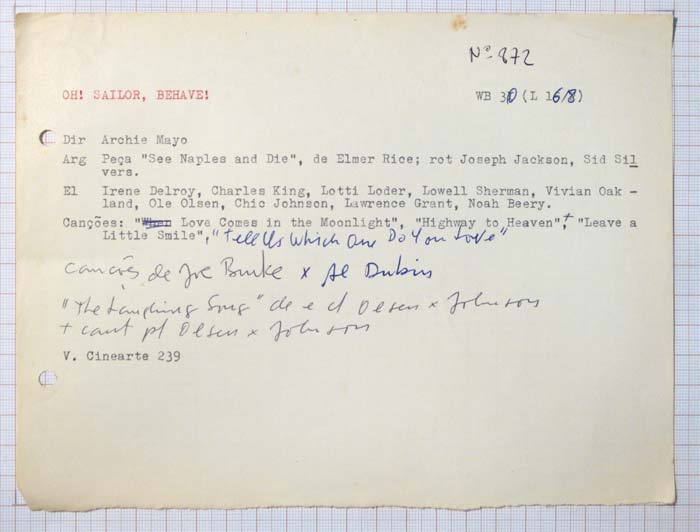 Nº 872
OH! SAILOR, BEHAVE!
WB 30 (L 16/8)
Dir Archie Mayo
Arg Peça "See Naples and Die", de Elmer Rice; rot Joseph Jackson, Sid Sil
vers.
El Irene Delroy, Charles King, Lotti Loder, Lowell Sherman, Vivian Oak -
land, Ole Olsen, Chic Johnson, Lawrence Grant, Noah Beery.
Canções: "When Love Comes in the Moonlight", "Highway to Heaven"+, "Leave a
Little Smile", "Tell Us Which One Do You Love"
canções de Joe Burke x Al Dubin
"The Laughing Song" de e cl Olsen x Johnson
+ cant pl Olsen x Johnson
V. Cinearte 239